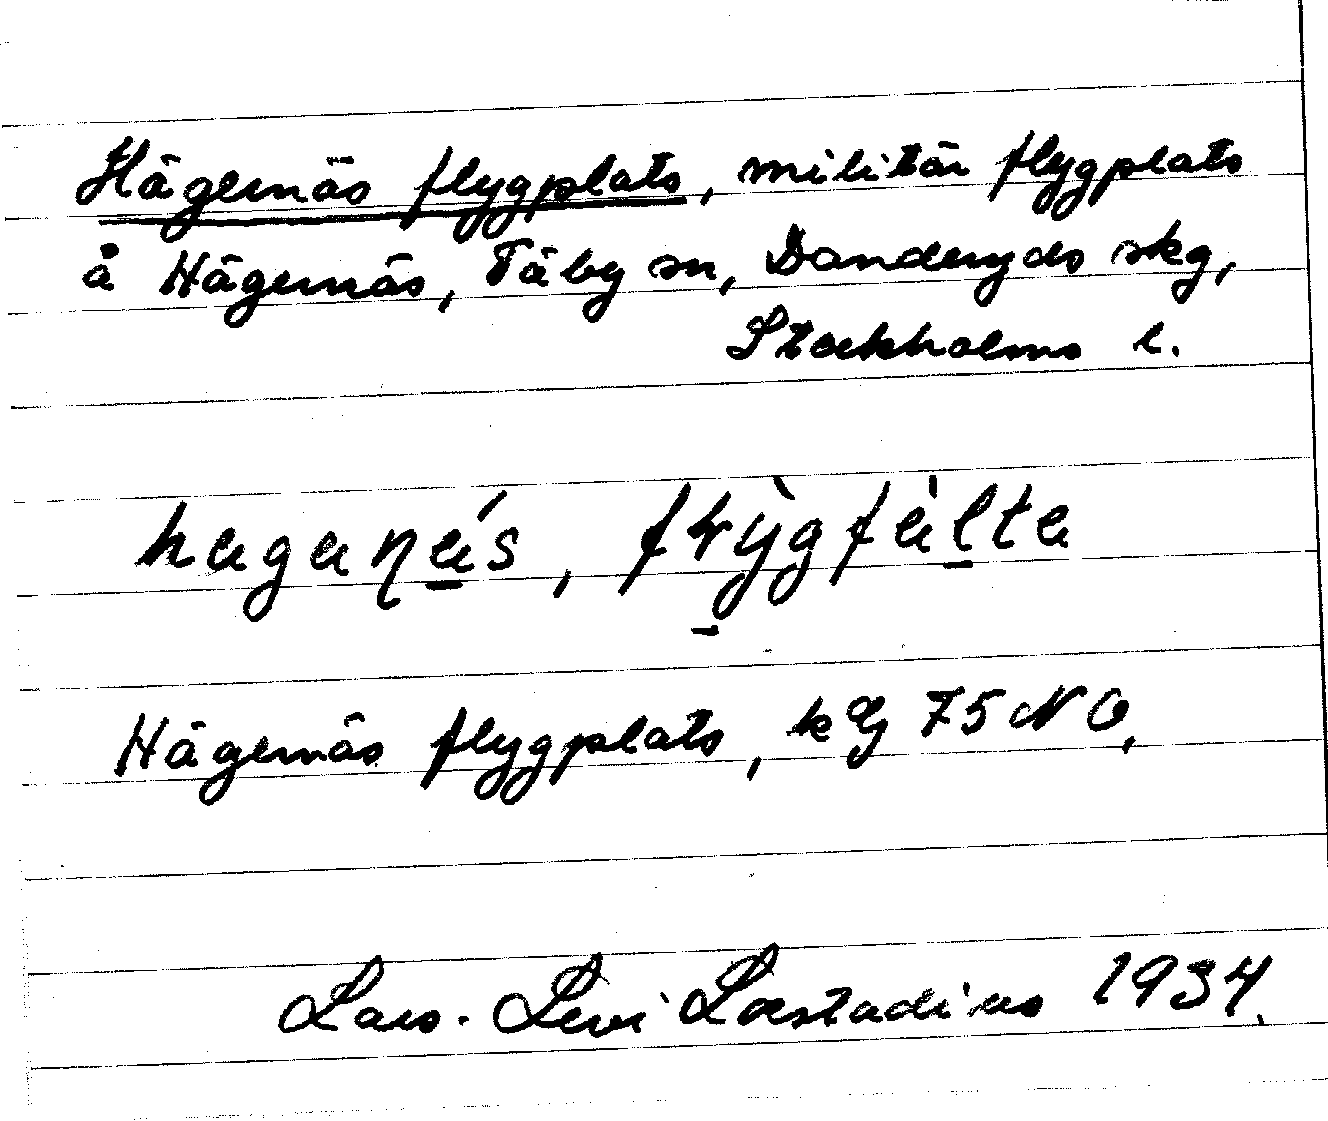 Hägernäs flygplats, militär flygplats
å Hägernäs, Täby sn, Danderyds skg,
Stockholms l.
haganä́s, flỳgfàlta
Hägernäs flygplats, k Lg 75 NO,
Lars-Levi Læstadius 1934.